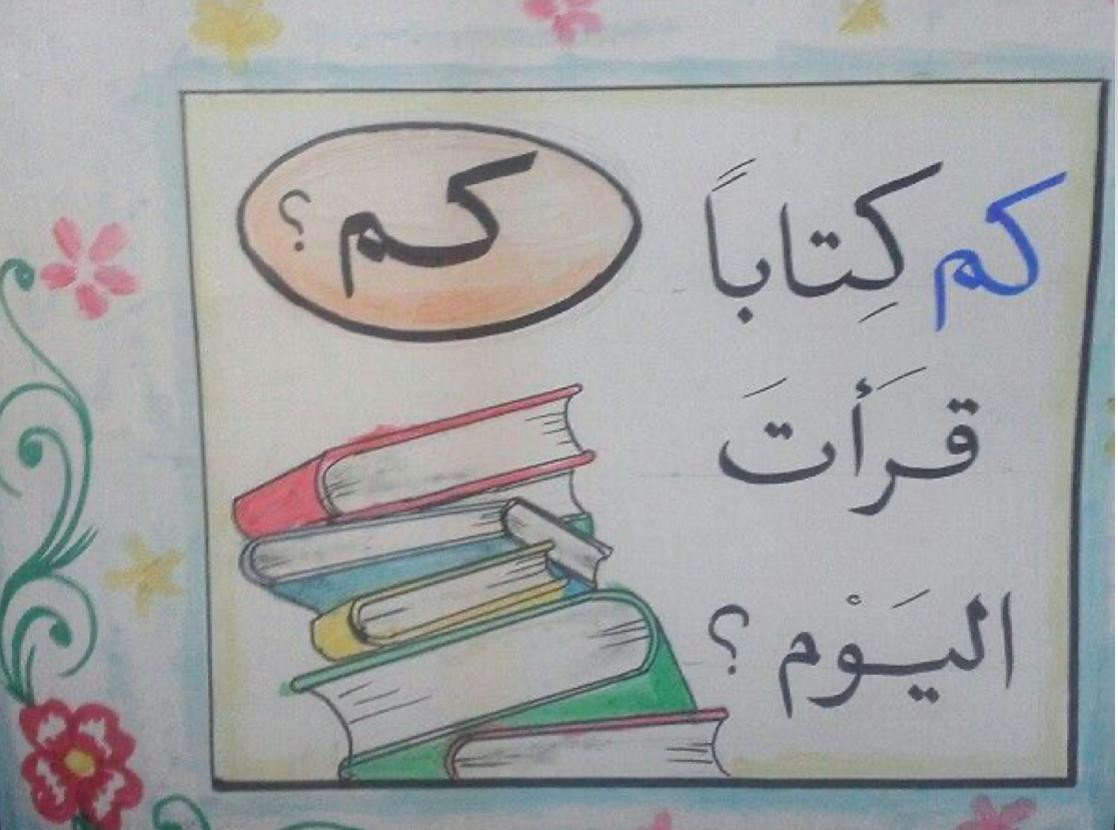 كم كِتاباً
قرَأتَ
اليَوْم ؟
كم ؟